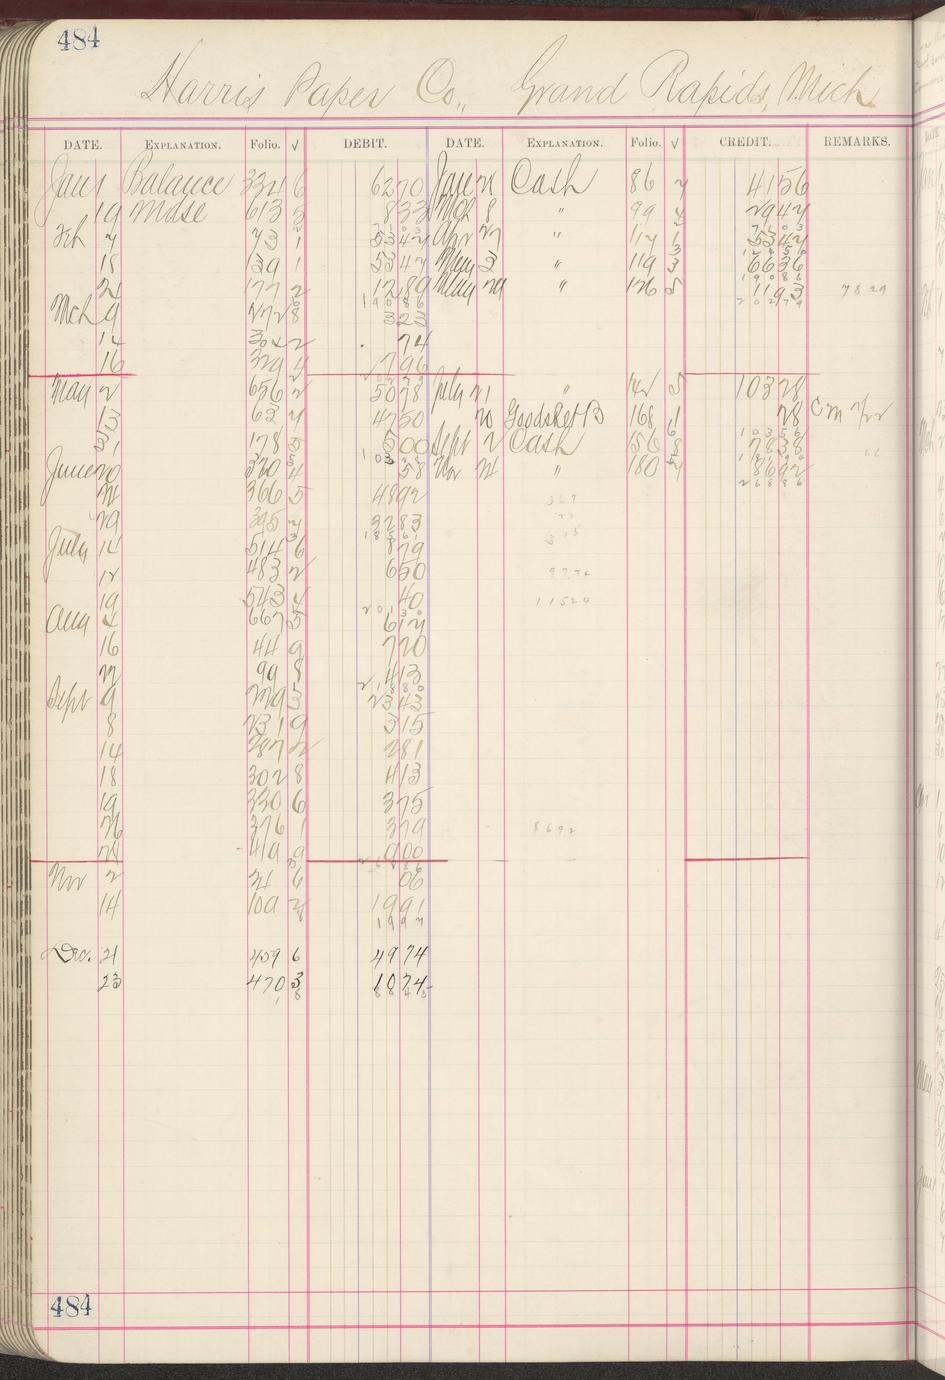 484
Harris Paper Co., Grand Rapids, Mich.
DATE. EXPLANATION. Folio. √ DEBIT. DATE. EXPLANATION. Folio. √ CREDIT. REMARKS.
Jany 1 Balance 334 6 6270 Jany 21 Cash 86 4156
19 Mdse 613 5 833 Mch 8 " 99 2947
Feb 7 73 1 5347 Apr 27 " 117 1 5347
18 139 1 5347 May 3 " 119 3 6636
24 177 2 1289 May 29 " 126 5 1193 7829
19086 20279
Mch 9 272 8 323
14 304 2 74
16 329 4 796
May 2 656 2 5078 July 21 " 142 5 10328
13 62 4 4750 20 Goods Ret B 168 1 28 C m
31 178 5 500 Sept 2 Cash 156 8 7838
June 20 320 4 58 Nov 24 " 180 8692
24 366 5 4892 26886
29 395 3283
July 14 514 6 879
12 483 2 650 9774
19 543 4 40 11524
Aug 4 667 5 617
16 44 9 720
22 99 8 413
Sept 9 229 3 2343
8 231 9 315
14 287 2 281
18 302 8 413
19 330 6 375
26 376 1 379 8692
29 419 9 900
Nov 2 21 6 06
14 109 2 1991
1997
Dec. 21 459 6 4974
23 470 3 1074
8845
484